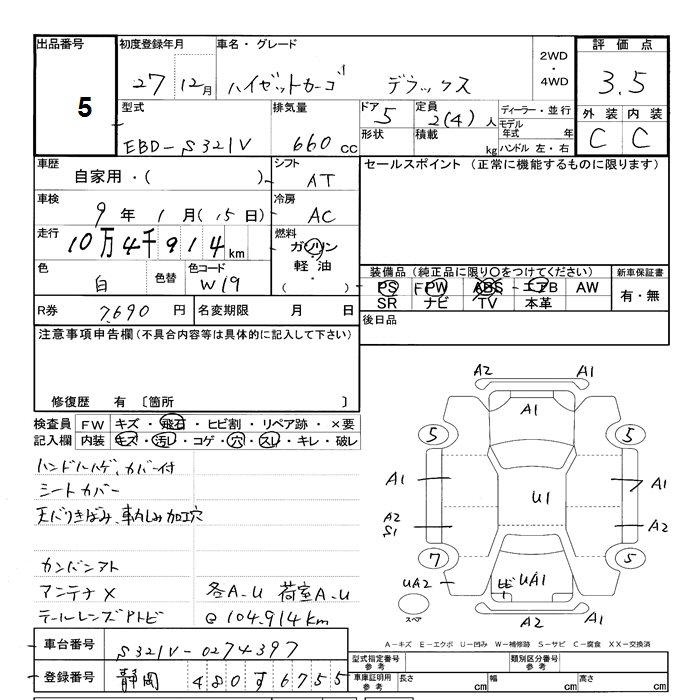 出品番号 5
初度登録年月 27 12月
車名・グレード ハイゼットカーゴ デラックス
2WD・4WD
評価点 3.5
型式 EBD-S321V
排気量 660cc
ドア 5
形状
定員 2(4)人
積載 kg
ディーラー・並行
モデル年式 年
ハンドル 左・右
外装 C 内装 C
車歴 自家用・( )
シフト AT
セールスポイント (正常に機能するものに限ります)
車検 9年1月(15日)
冷房 AC
走行 10万4千914km
燃料 ガソリン・軽油・( )
色 白 色替 色コード W19
装備品(純正品に限り○をつけてください)
PS PW ABS エアB AW
SR ナビ TV 本革
新車保証書 有・無
R券 7,690円
名変期限 月 日
後日品
注意事項申告欄(不具合内容等は具体的に記入して下さい)
修復歴 有 〔箇所 〕
検査員記入欄
FW キズ・飛石・ヒビ割・リペア跡・×要
内装 キズ・汚レ・コゲ・穴・スレ・キレ・破レ
ハンドルハゲ、カバー付
シートカバー
天バリきばみ、車内しみ加工穴
カンバンアト
アンテナX 各A-U 荷室A-U
テールレンズアトビ @104,914km
A2 A1
A1
5 5
A1 A1
U1
A2 S1 A2
7 5
UA2 ヒビ UA1
スペア A2 A1
A-キズ E-エクボ U-凹み W-補修跡 S-サビ C-腐食 XX-交換済
車台番号 S321V-0274397
登録番号 静岡 480す6755
型式指定番号 参考
類別区分番号 参考
車庫証明用 参考 長さ cm 幅 cm 高さ cm